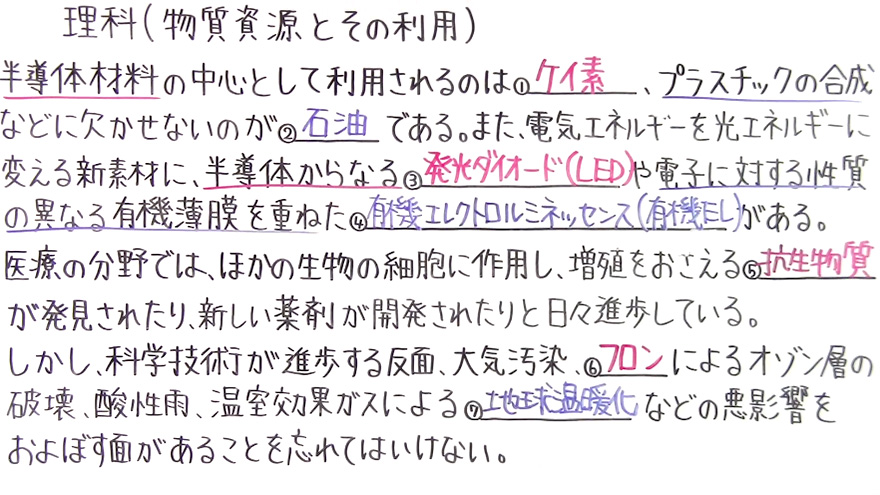 理科(物質資源とその利用)
半導体材料の中心として利用されるのは①ケイ素、プラスチックの合成
などに欠かせないのが②石油である。また、電気エネルギーを光エネルギーに
変える新素材に、半導体からなる③発光ダイオード(LED)や電子に対する性質
の異なる有機薄膜を重ねた④有機エレクトロルミネッセンス(有機EL)がある。
医療の分野では、ほかの生物の細胞に作用し、増殖をおさえる⑤抗生物質
が発見されたり、新しい薬剤が開発されたりと日々進歩している。
しかし、科学技術が進歩する反面、大気汚染、⑥フロンによるオゾン層の
破壊、酸性雨、温室効果ガスによる⑦地球温暖化などの悪影響を
およぼす面があることを忘れてはいけない。